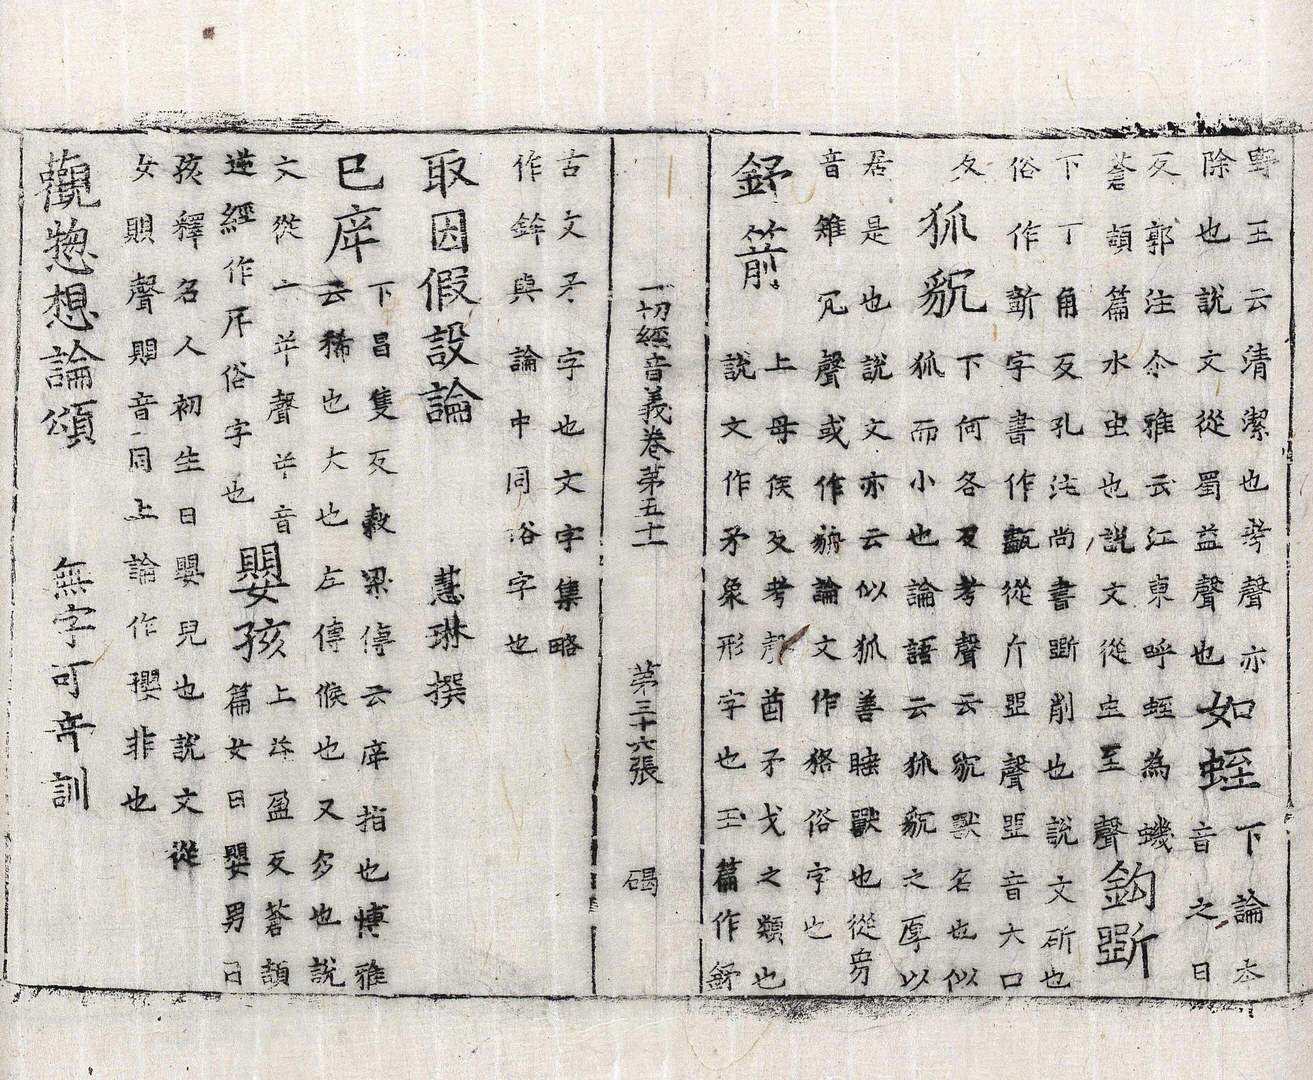 野王云清潔也考聲亦
除也說文從蜀益聲也
如蛭
下論本
音之日
反郭注尒雅云江東呼蛭為蟣
蒼頡篇水虫也說文從虫至聲
鈎斵
下丁角反孔注尚書斵削也說文斫也
俗作斲字書作㪁從斤㔷聲㔷音六口
反
狐貌
下何各反考聲云貌獸名也似
狐而小也論語云狐貌之厚以
居是也說文亦云似狐善睡獸也從豸
音雉冗聲或作論文作狢俗字也
鉾箭
上母侯反考聲酋矛戈之類也
說文作矛象形字也玉篇作鉾
一切經音義卷第五十一 第三十六張 碣
古文矛字也文字集略
作鉾與論中同俗字也
取因假設論 慧琳撰
已㡿
下昌隻反穀梁傳云㡿指也博雅
云稀也大也左傳候也又多也說
文從广屰聲屰音
逆經作斥俗字也
嬰孩
上益盈反蒼頡
篇女曰嬰男曰
孩釋名人初生日嬰兒也說文從
女賏聲賏音同上論作瓔非也
觀㹅想論頌 無字可音訓